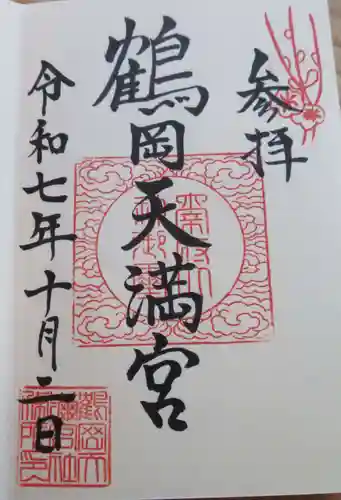 参拝
鶴岡天満宮
令和七年十月二日